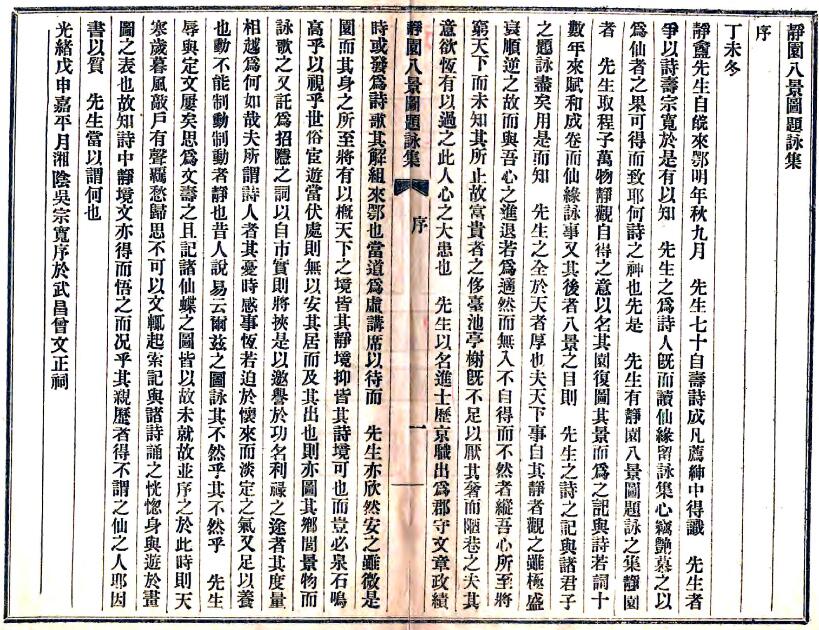 靜園八景圖題詠集
序
丁未冬
靜盦先生自皖來鄂明年秋九月　先生七十自壽詩成凡薦紳中得讖　先生者
爭以詩壽宗寬於是有以知　先生之爲詩人旣而讀仙緣畱詠集心竊艷慕之以
爲仙者之果可得而致耶何詩之神也先是　先生有靜園八景圖題詠之集靜園
者　先生取程子萬物靜觀自得之意以名其園復圖其景而爲之記與詩若詞十
數年來賦和成卷而仙緣詠事又其後者八景之目則　先生之詩之記與諸君子
之題詠盡矣用是而知　先生之全於天者厚也夫天下事自其靜者觀之雖極盛
衰順逆之故而與吾心之進退若爲適然而無入不自得而不然者縱吾心所至將
窮天下而未知其所止故富貴者之侈臺池亭榭旣不足以厭其奢而陋巷之夫其
意欲恆有以過之此人心之大患也　先生以名進士歷京職出爲郡守文章政績
靜園八景圖題詠集　序　一
時或發爲詩歌其解組來鄂也當道爲虛講席以待而　先生亦欣然安之雖微是
園而其身之所至將有以概天下之境皆其靜境抑皆其詩境可也而豈必泉石鳴
高乎以視乎世俗宦遊當伏處則無以安其居而及其出也則亦圖其鄉閭景物而
詠歌之又託爲招隱之詞以自市實則將挾是以邀譽於功名利祿之途者其度量
相越爲何如哉夫所謂詩人者其憂時感事恆若迫於懷來而淡定之氣又足以養
也動不能制動制動者靜也昔人說易云爾玆之圖詠其不然乎其不然乎　先生
辱與定文屢矣思爲文壽之且記諸仙蝶之圖皆以故未就故並序之於此時則天
寒歲暮風敲戶有聲羈愁歸思不可以文輒起索記與諸詩誦之恍惚身與遊於畫
圖之表也故知詩中靜境文亦得而悟之而況乎其親歷者得不謂之仙之人耶因
書以質　先生當以謂何也
光緒戊申嘉平月湘陰吳宗寬序於武昌曾文正祠